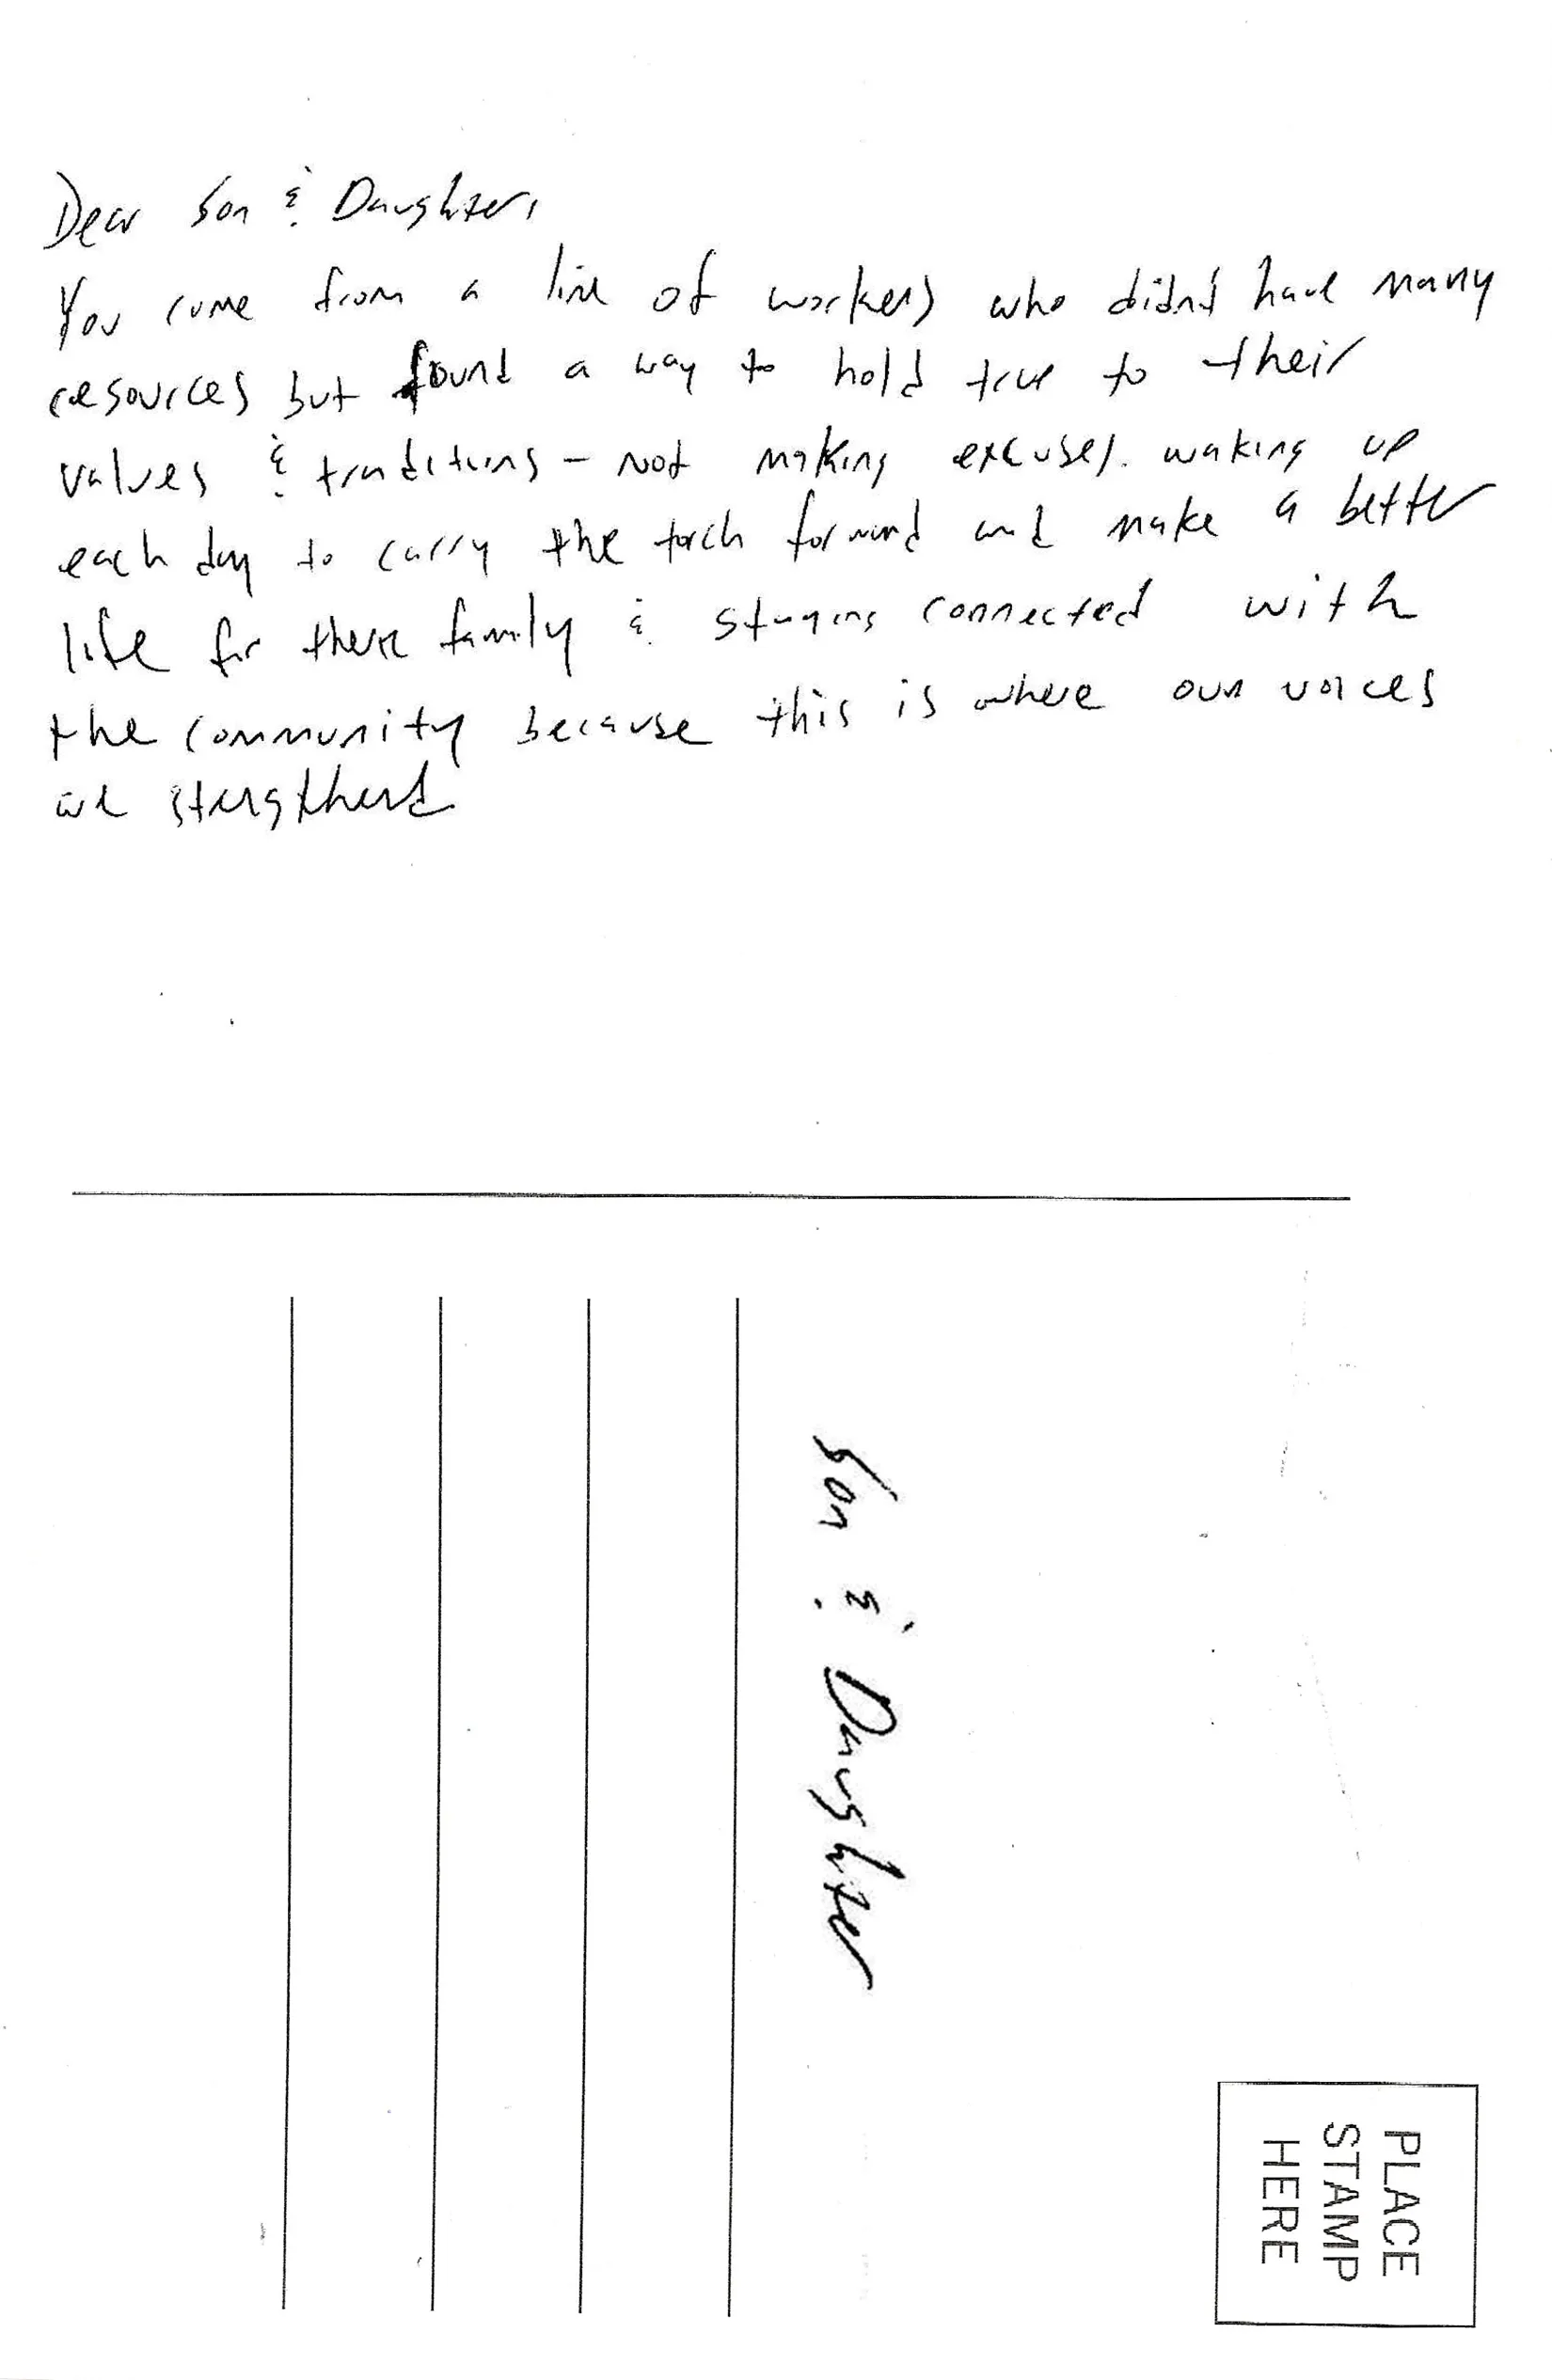 Dear Son & Daughter,
You come from a line of workers who didn't have many
resources but found a way to hold true to their
values & traditions - Not making excuses. waking up
each day to carry the torch forward and make a better
life for there family & staying connected with
the community because this is where our voices
are strengthend
Son & Daughter
PLACE
STAMP
HERE